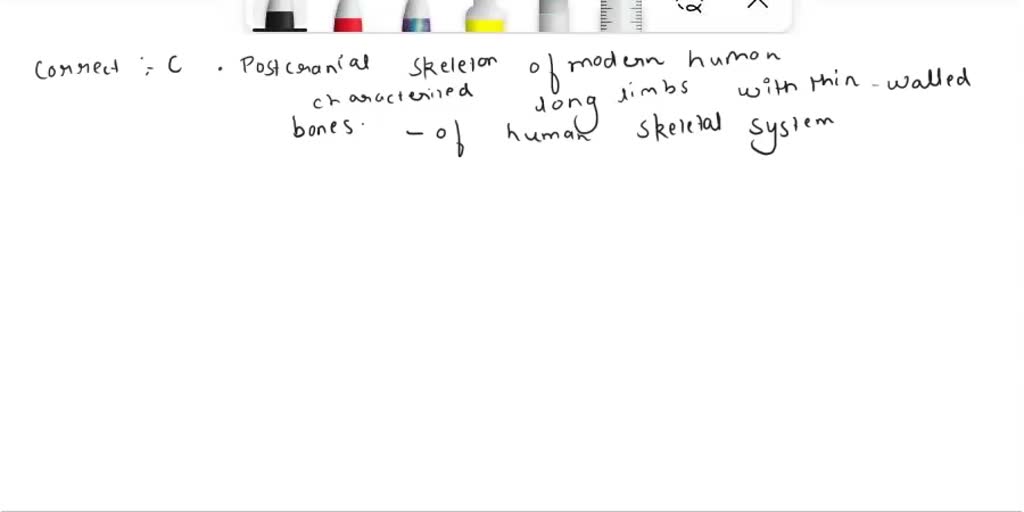 Correct :- C . Postcranial skeleton of modern human
characterized long limbs with thin-walled
bones. - of human skeletal system